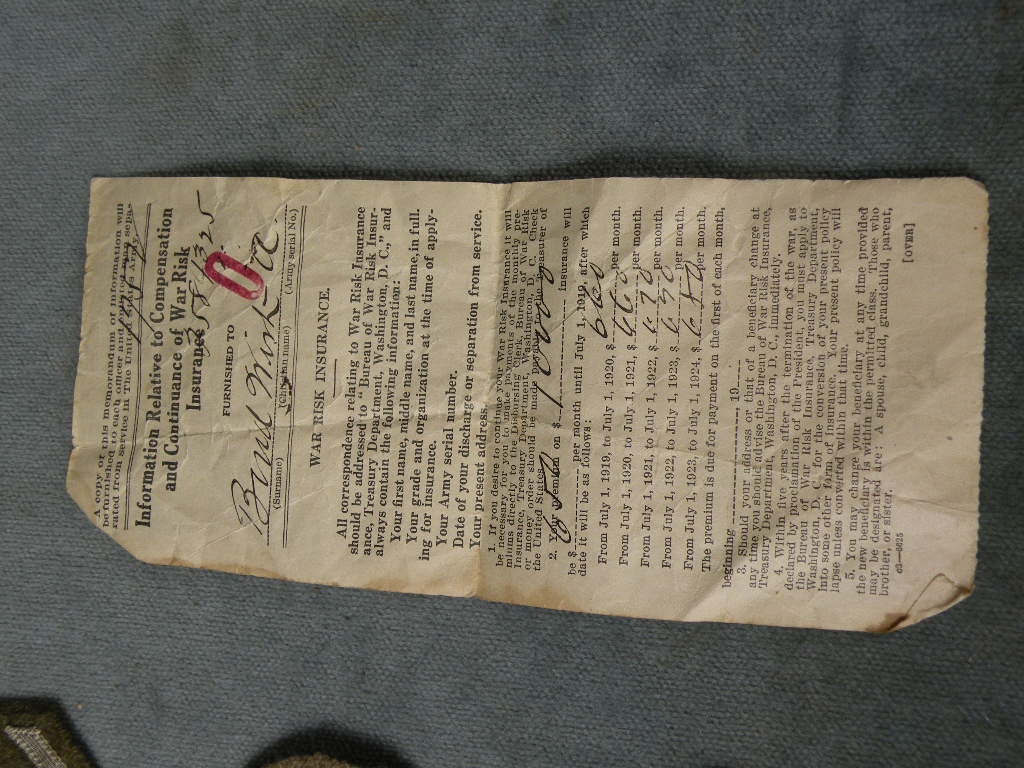 A copy of this memorandum of information will
be furnished to each officer and enlisted man sepa-
rated from service in The United States Army.
Information Relative to Compensation
and Continuance of War Risk
Insurance
FURNISHED TO
(Surname) (Christian name) (Army serial No.)
WAR RISK INSURANCE.
All correspondence relating to War Risk Insurance
should be addressed to "Bureau of War Risk Insur-
ance, Treasury Department, Washington, D. C.," and
always contain the following information:
Your first name, middle name, and last name, in full.
Your grade and organization at the time of apply-
ing for insurance.
Your Army serial number.
Date of your discharge or separation from service.
Your present address.
1. If you desire to continue your War Risk Insurance it will
be necessary for you to make payments of the monthly pre-
miums directly to the Disbursing Clerk, Bureau of War Risk
Insurance, Treasury Department, Washington, D. C. Check
or money order should be made payable to the Treasurer of
the United States.
2. Your premium on $ insurance will
be $ per month until July 1, 1919, after which
date it will be as follows:
From July 1, 1919, to July 1, 1920, $ 660 per month.
From July 1, 1920, to July 1, 1921, $ 660 per month.
From July 1, 1921, to July 1, 1922, $ 670 per month.
From July 1, 1922, to July 1, 1923, $ 670 per month.
From July 1, 1923, to July 1, 1924, $ 680 per month.
The premium is due for payment on the first of each month,
beginning , 19
3. Should your address or that of a beneficiary change at
any time you should advise the Bureau of War Risk Insurance,
Treasury Department, Washington, D. C., immediately.
4. Within five years after the termination of the war, as
declared by proclamation of the President, you must apply to
the Bureau of War Risk Insurance, Treasury Department,
Washington, D. C., for the conversion of your present policy
into some other form of insurance. Your present policy will
lapse unless converted within that time.
5. You may change your beneficiary at any time provided
the new beneficiary is within the permitted class. Those who
may be designated are: A spouse, child, grandchild, parent,
brother, or sister.
[OVER]